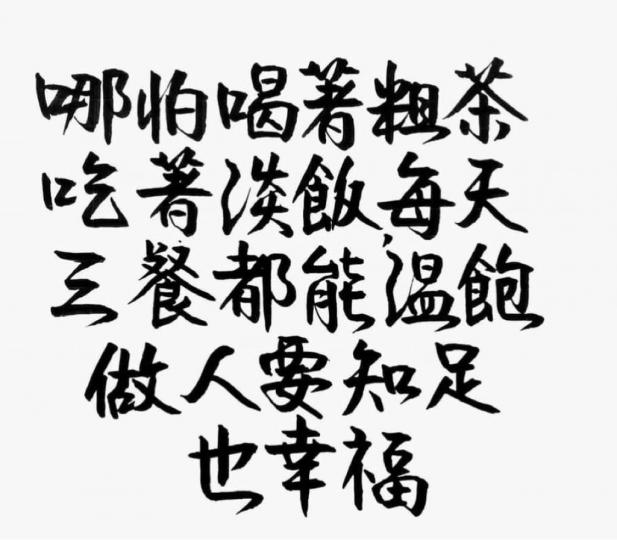 哪怕喝著粗茶
吃著淡飯,每天
三餐都能溫飽
做人要知足
也幸福